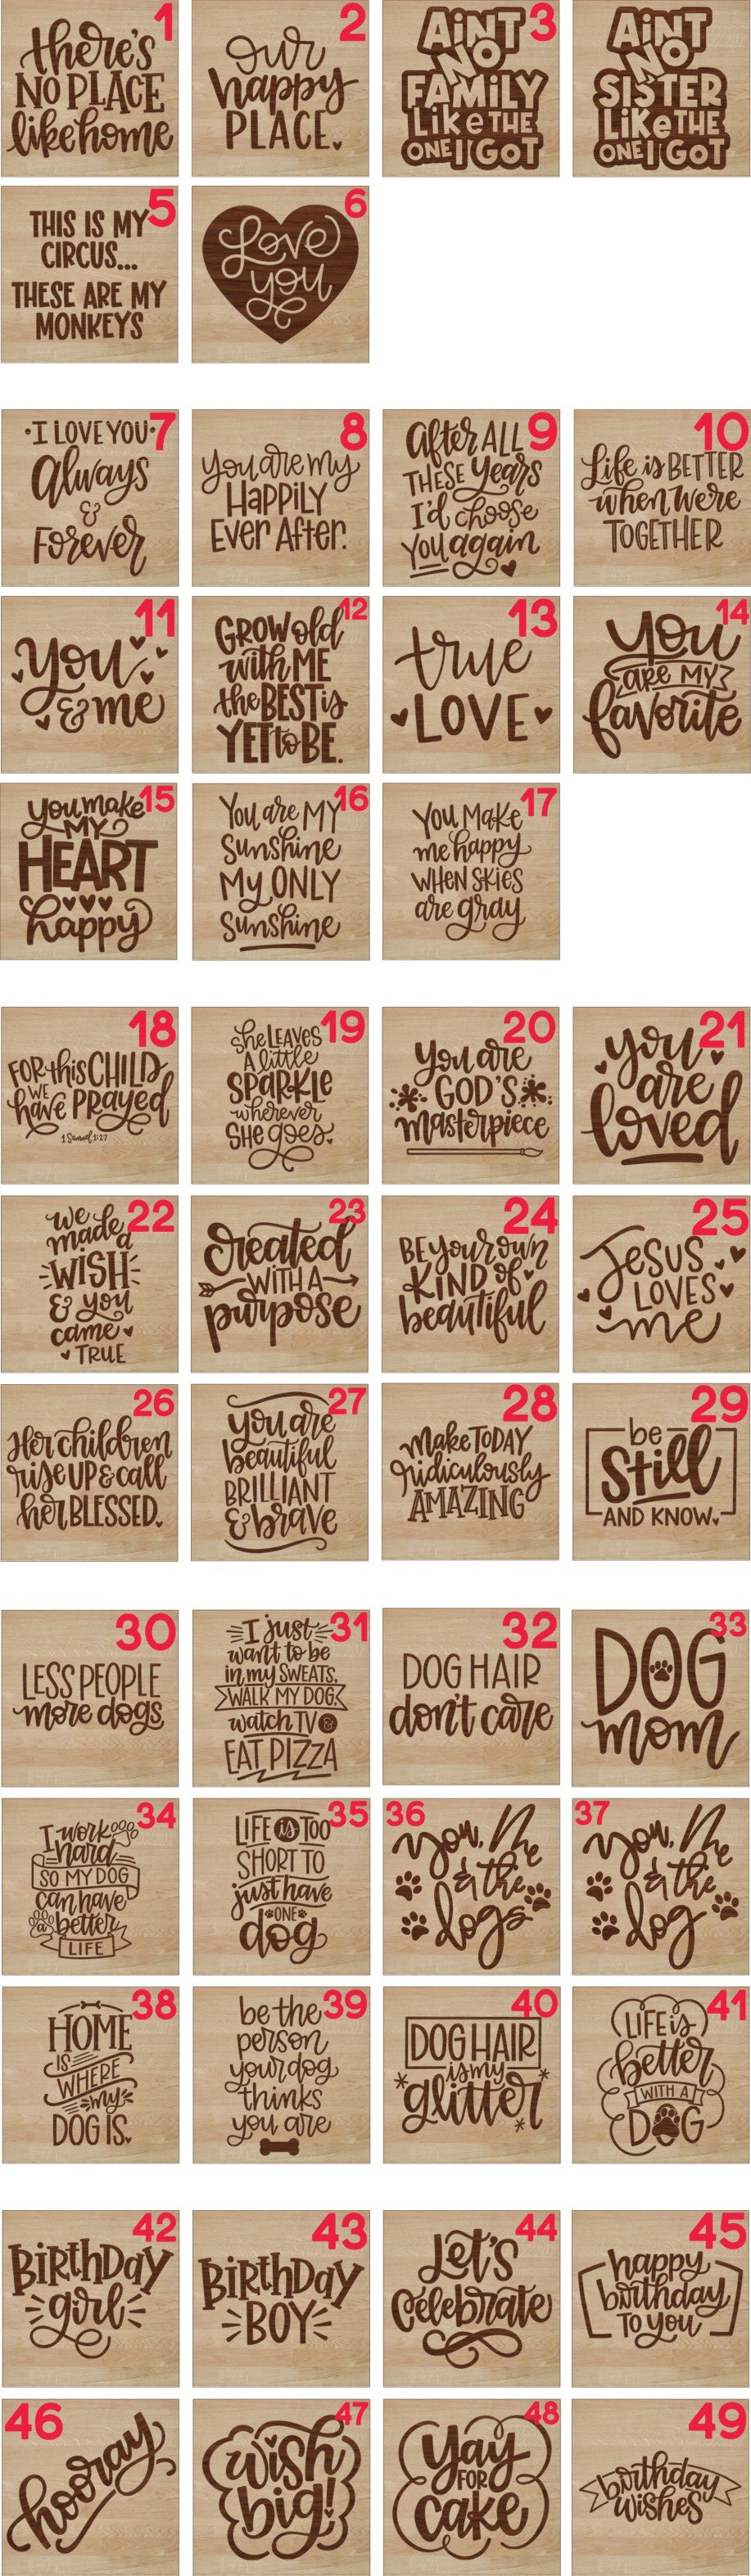 1
there's
NO PLACE
like home
2
our
happy
PLACE.
3
AiNT
NO
FAMiLY
LiKe THE
ONE I GOT
AiNT
NO
SiSTER
LiKe THE
ONE I GOT
5
THIS IS MY
CIRCUS...
THESE ARE MY
MONKEYS
6
Love
you
7
I LOVE YOU
Always
&
Forever
8
you are my
HAPPILY
Ever After.
9
After ALL
THESE years
I'd choose
you again
10
Life is BETTER
when we're
TOGETHER
11
You
& me
12
GROW old
with ME
the BEST is
YET to BE.
13
true
LOVE
14
You
are MY
favorite
15
you make
MY
HEART
happy
16
You are MY
Sunshine
My ONLY
Sunshine
17
You Make
me happy
WHEN SKiES
are gray
18
FOR this CHILD
WE
have PRayed
1 Samuel 1:27
19
She LEAVES
A little
SPARKLE
wherever
SHE goes.
20
you are
GOD'S
masterpiece
21
you
are
loved
22
we
made a
WISH
& you
came
TRUE
23
Created
WITH A
purpose
24
BE your own
KIND of
beautiful
25
Jesus
LOVES
me
26
Her children
rise UP & call
her BLESSED.
27
you are
beautiful
BRILLIANT
& brave
28
Make TODAY
ridiculously
AMAZING
29
be
Still
AND KNOW.
30
LESS PEOPLE
more dogs
31
I just
want to be
in my SWEATS,
WALK MY DOG,
watch TV &
EAT PIZZA
32
DOG HAIR
don't care
33
DOG
mom
34
I work
hard
SO MY DOG
can have
a better
LIFE
35
LIFE is TOO
SHORT TO
just have
ONE
dog
36
You, Me
& the
dogs
37
You, Me
& the
dog
38
HOME
IS
WHERE
my
DOG IS.
39
be the
person
your dog
thinks
you are
40
DOG HAIR
is my
glitter
41
LIFE is
better
WITH A
DOG
42
BIRTHDAY
girl
43
BIRTHDAY
BOY
44
Let's
Celebrate
45
happy
birthday
TO you
46
hooray
47
wish
big!
48
Yay
FOR
cake
49
birthday
wishes